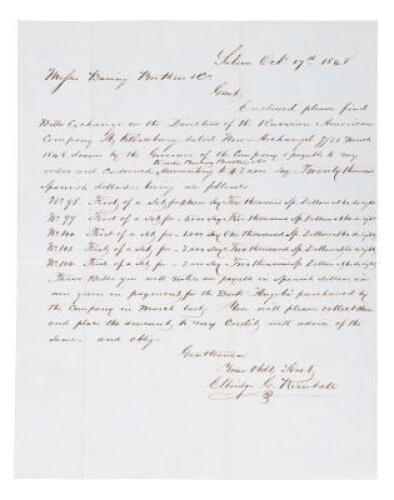 Salem Oct 17th 1848
Messrs Baring Brothers & Co
Gent,
Enclosed please find
Bills Exchange on the Directors of the Russian American
Company St Petersburg dated New Archangel March
1848 drawn by the Governor of the Company & payable to my
order and Endorsed
Spanish dollars being as follows
No 98 First of a Set for Sp. Dollars
No 99 First of a Set for Sp. Dollars
No 100 First of a Set for 1,000 say One thousand Sp. Dollars
No 103 First of a Set for 2,000 say Two thousand Sp Dollars
First of a Set for 2,000 say Two thousand Sp. Dollars
These Bills you will notice are payable in Spanish dollars &
are given in payment for the purchased by
the Company in March last. You will please collect them
and place the amount to my Credit with advice of the
same. and oblige
Gentlemen
Your Obdt Servt,
Elbridge G. Kimball